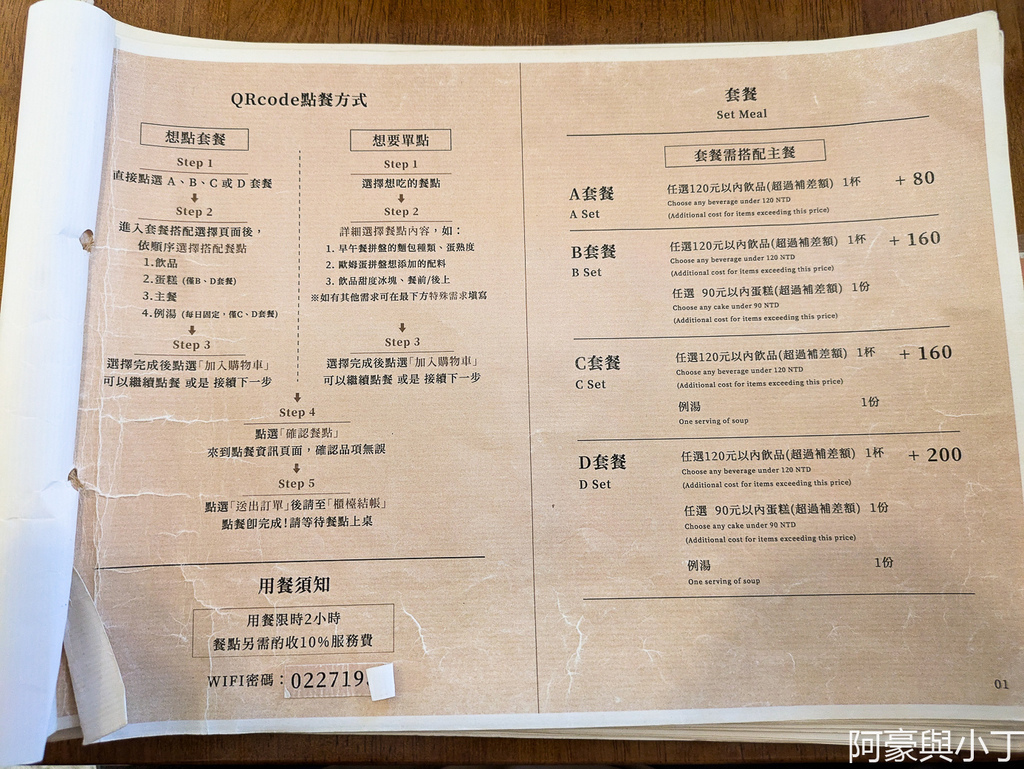 QRcode點餐方式
想點套餐
Step 1
直接點選 A、B、C 或 D 套餐
Step 2
進入套餐搭配選擇頁面後，
依順序選擇搭配餐點
1.飲品
2.蛋糕 (僅B、D套餐)
3.主餐
4.例湯 (每日固定，僅C、D套餐)
Step 3
選擇完成後點選「加入購物車」
可以繼續點餐 或是 接續下一步
想要單點
Step 1
選擇想吃的餐點
Step 2
詳細選擇餐點內容，如：
1. 早午餐拼盤的麵包種類、蛋熟度
2. 歐姆蛋拼盤想添加的配料
3. 飲品甜度冰塊、餐前/後上
※如有其他需求可在最下方特殊需求填寫
Step 3
選擇完成後點選「加入購物車」
可以繼續點餐 或是 接續下一步
Step 4
點選「確認餐點」
來到點餐資訊頁面，確認品項無誤
Step 5
點選「送出訂單」後請至「櫃檯結帳」
點餐即完成!請等待餐點上桌
用餐須知
用餐限時2小時
餐點另需酌收10%服務費
WIFI密碼：022719
套餐
Set Meal
套餐需搭配主餐
A套餐 任選120元以內飲品(超過補差額) 1杯 + 80
A Set Choose any beverage under 120 NTD
(Additional cost for items exceeding this price)
B套餐 任選120元以內飲品(超過補差額) 1杯 + 160
B Set Choose any beverage under 120 NTD
(Additional cost for items exceeding this price)
任選 90元以內蛋糕(超過補差額) 1份
Choose any cake under 90 NTD
(Additional cost for items exceeding this price)
C套餐 任選120元以內飲品(超過補差額) 1杯 + 160
C Set Choose any beverage under 120 NTD
(Additional cost for items exceeding this price)
例湯 1份
One serving of soup
D套餐 任選120元以內飲品(超過補差額) 1杯 + 200
D Set Choose any beverage under 120 NTD
(Additional cost for items exceeding this price)
任選 90元以內蛋糕(超過補差額) 1份
Choose any cake under 90 NTD
(Additional cost for items exceeding this price)
例湯 1份
One serving of soup
01
阿豪與小丁